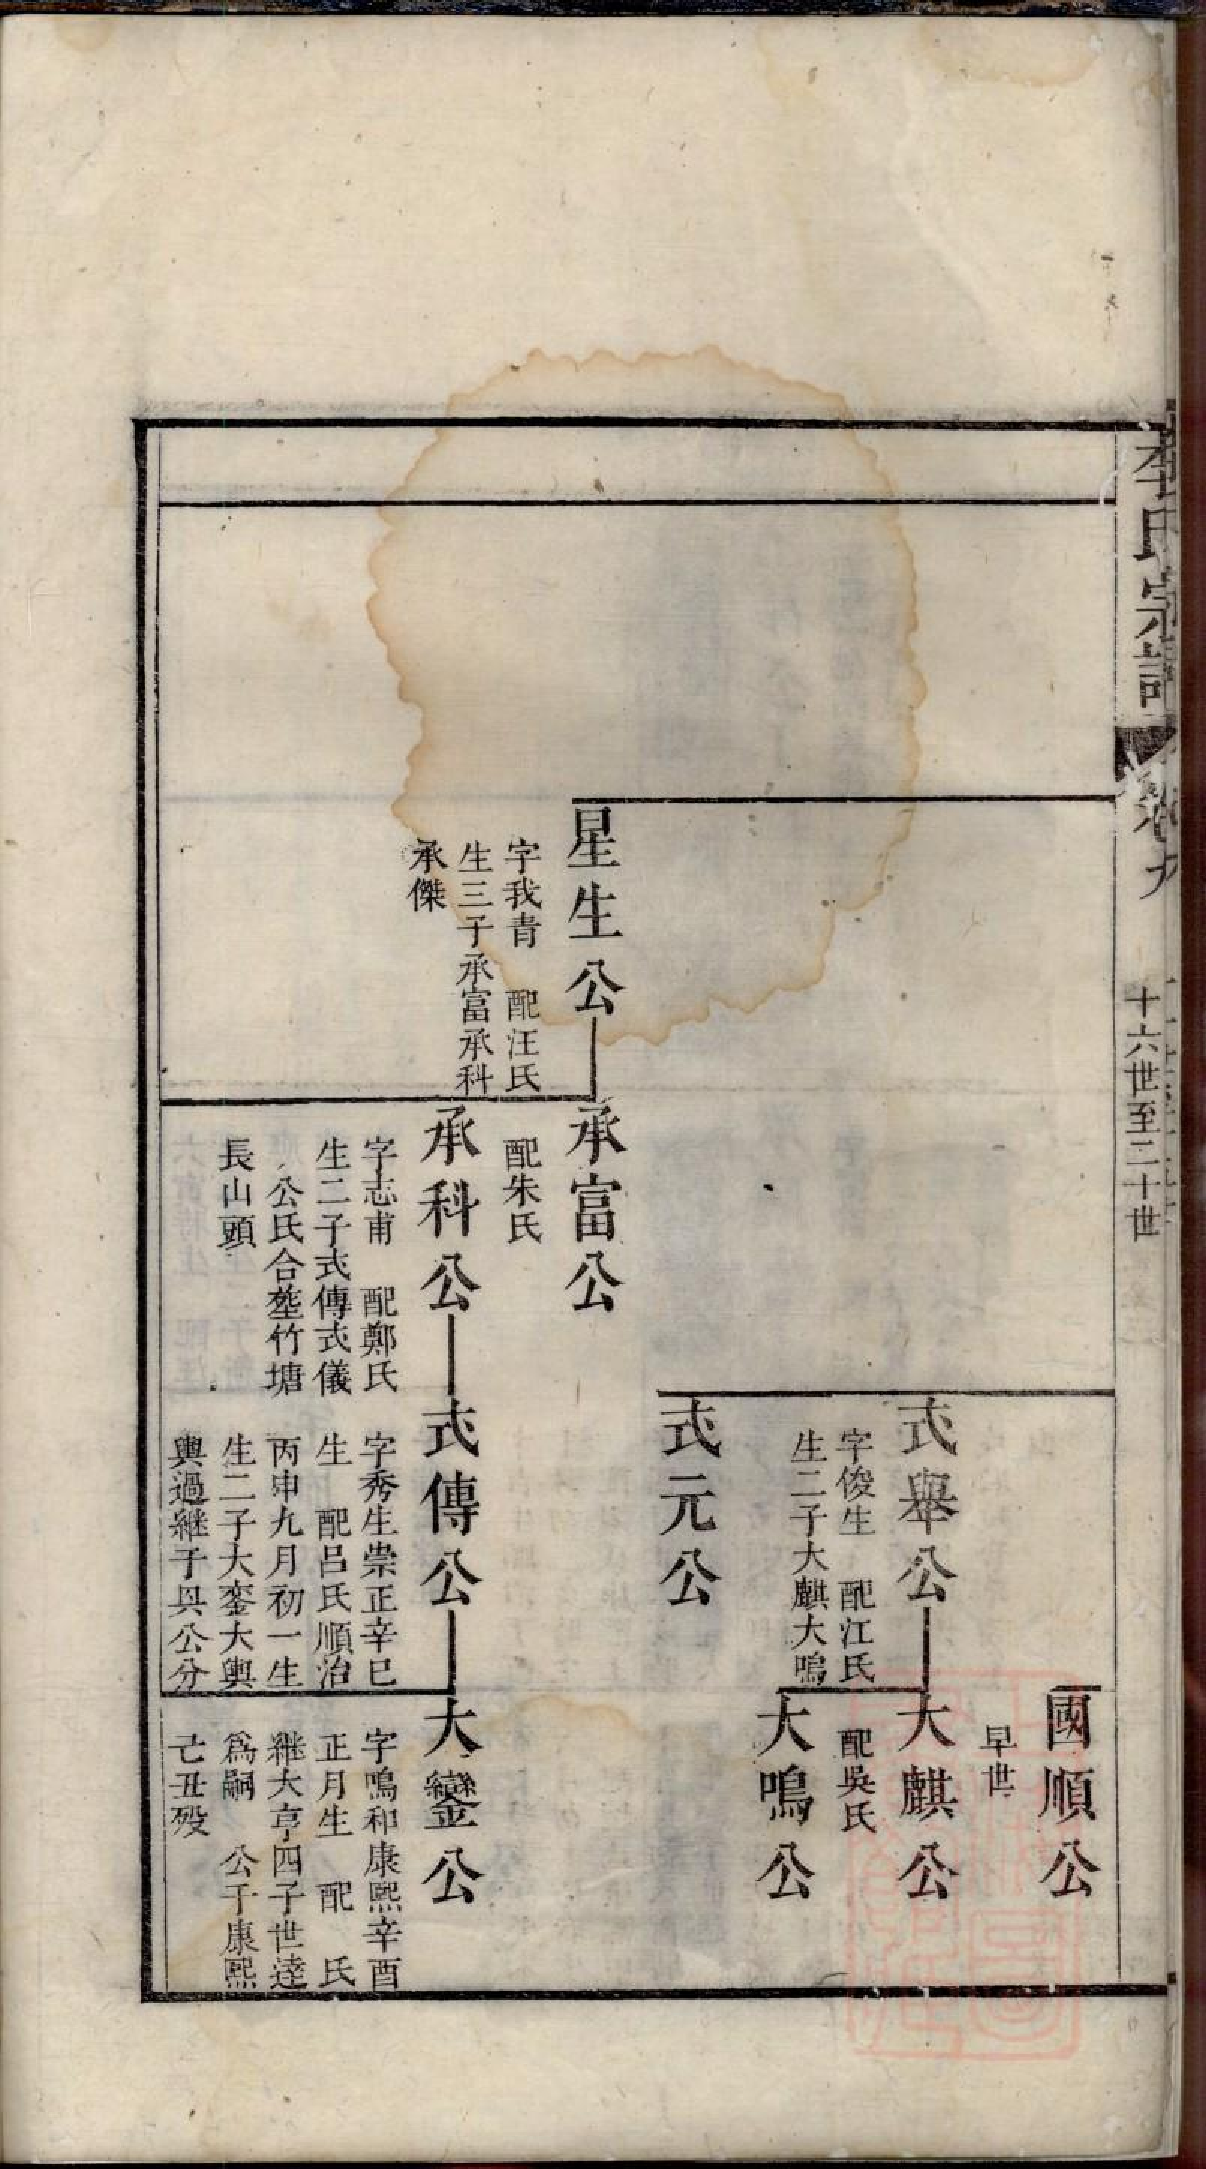 李氏宗譜
卷九
十六世至二十世
國順公
早世
式舉公
字俊生 配江氏
生二子大麒大鳴
大麒公
配吳氏
大鳴公
式元公
星生公
字我青 配汪氏
生三子承富承科
承傑
承富公
配朱氏
承科公
字志甫 配鄭氏
生二子式傳式儀
公氏合塟竹塘
長山頭
式傳公
字秀生崇正辛巳
生 配呂氏順治
丙申九月初一生
生二子大鑾大輿
輿過継于具公分
大鑾公
字鳴和康熙辛酉
正月生 配 氏
継大亨四子世逵
爲嗣 公于康熙
亡丑歿